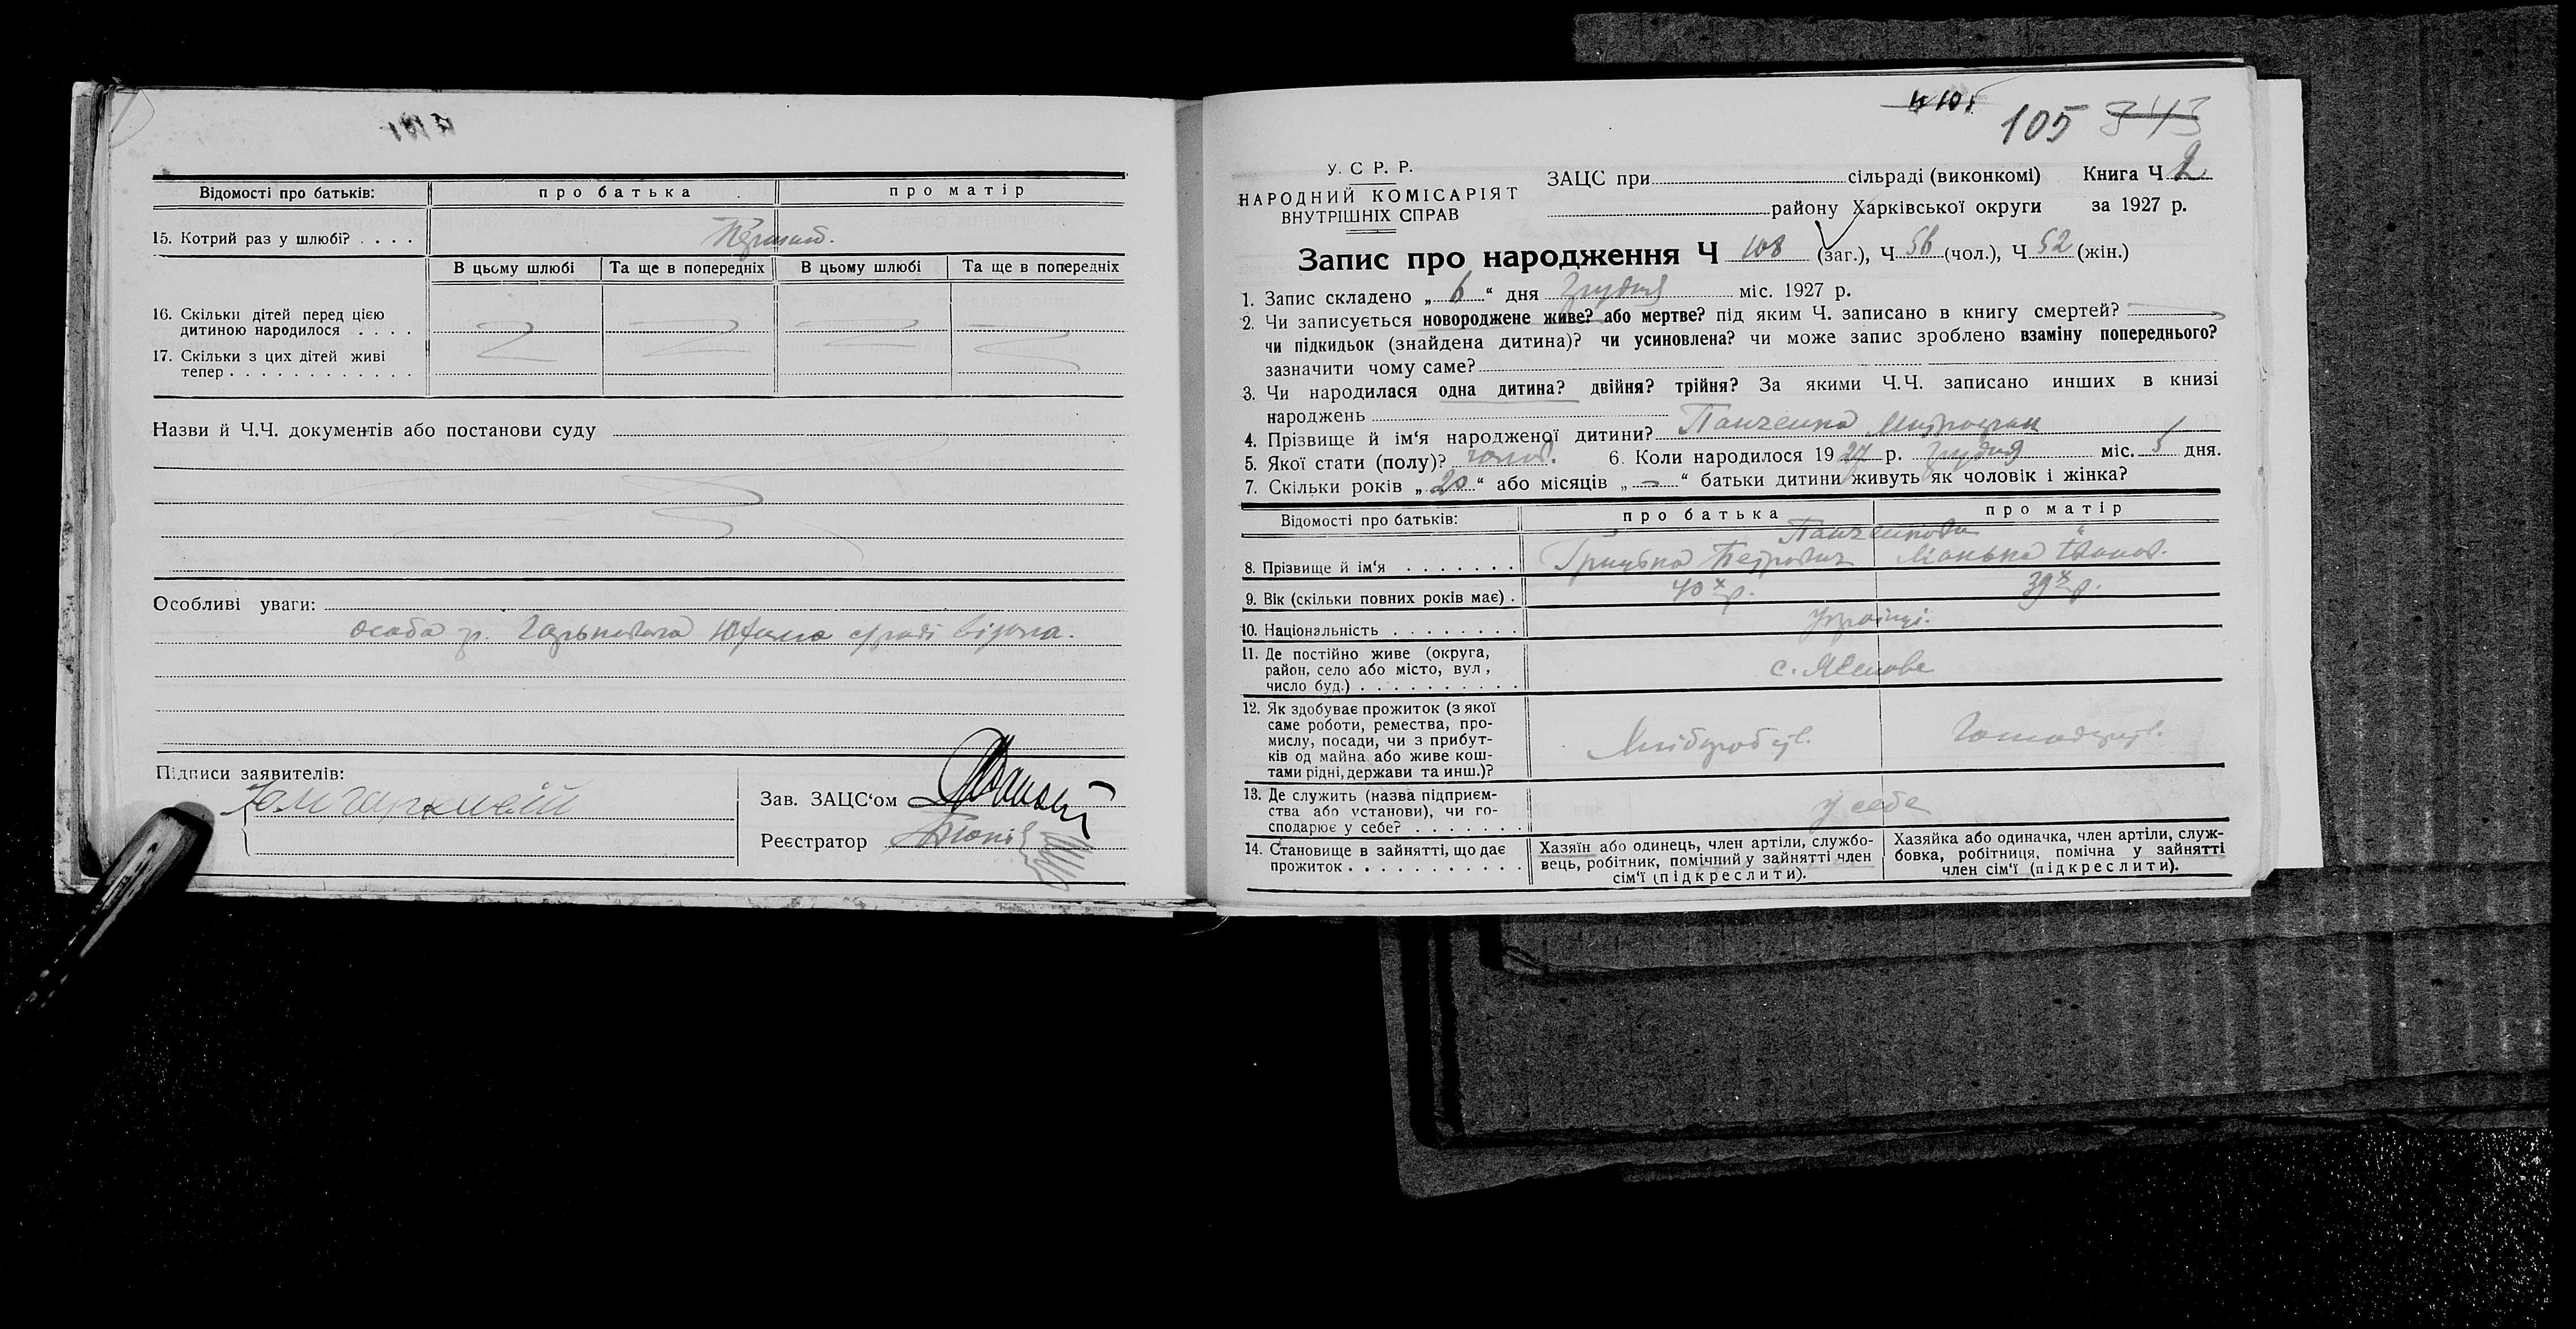 Відомості про батьків: про батька про матір
15. Котрий раз у шлюбі? . . . . Перший.
В цьому шлюбі Та ще в попередніх В цьому шлюбі Та ще в попередніх
16. Скільки дітей перед цією
дитиною народилося . . . .
17. Скільки з цих дітей живі
тепер . . . . . . . . . . . .
Назви й Ч.Ч. документів або постанови суду
Особливі уваги:
особа гр. сільраді відома.
Підписи заявителів:
Зав. ЗАЦС‘ом
Реєстратор
105 343
У. С. Р. Р.
НАРОДНИЙ КОМІСАРІЯТ
ВНУТРІШНІХ СПРАВ
ЗАЦС при сільраді (виконкомі) Книга Ч 2
району Харківської округи за 1927 р.
Запис про народження Ч 108 (заг.), Ч 56 (чол.), Ч 52 (жін.)
1. Запис складено „ 6 “ дня грудня міс. 1927 р.
2. Чи записується новороджене живе? або мертве? під яким Ч. записано в книгу смертей?
чи підкидьок (знайдена дитина)? чи усиновлена? чи може запис зроблено взаміну попереднього?
зазначити чому саме?
3. Чи народилася одна дитина? двійня? трійня? За якими Ч.Ч. записано инших в книзі
народжень
4. Прізвище й ім‘я народженої дитини? Панченко Митрофан
5. Якої стати (полу)? чолов. 6. Коли народилося 1927 р. грудня міс. 5 дня.
7. Скільки років „ 20 “ або місяців „ — “ батьки дитини живуть як чоловік і жінка?
Відомості про батьків: про батька про матір
Панченкови
8. Прізвище й ім‘я . . . . . . . Грицько Петрович Іванов.
9. Вік (скільки повних років має) . 40 х р. 39 х р.
10. Національність . . . . . . . . Українці.
11. Де постійно живе (округа,
район, село або місто, вул,
число буд.) . . . . . . . . . . с.
12. Як здобуває прожиток (з якої
саме роботи, ремества, про-
мислу, посади, чи з прибут-
ків од майна або живе кош-
тами рідні, держави та инш.)? Хлібороб
13. Де служить (назва підприєм-
ства або установи), чи го-
сподарює у себе? . . . . . . . у себе
14. Становище в зайнятті, що дає
прожиток . . . . . . . . . . .
Хазяїн або одинець, член артіли, службо-
вець, робітник, помічний у зайнятті член
сім‘ї (підкреслити).
Хазяйка або одиначка, член артіли, служ-
бовка, робітниця, помічна у зайнятті
член сім‘ї (підкреслити).